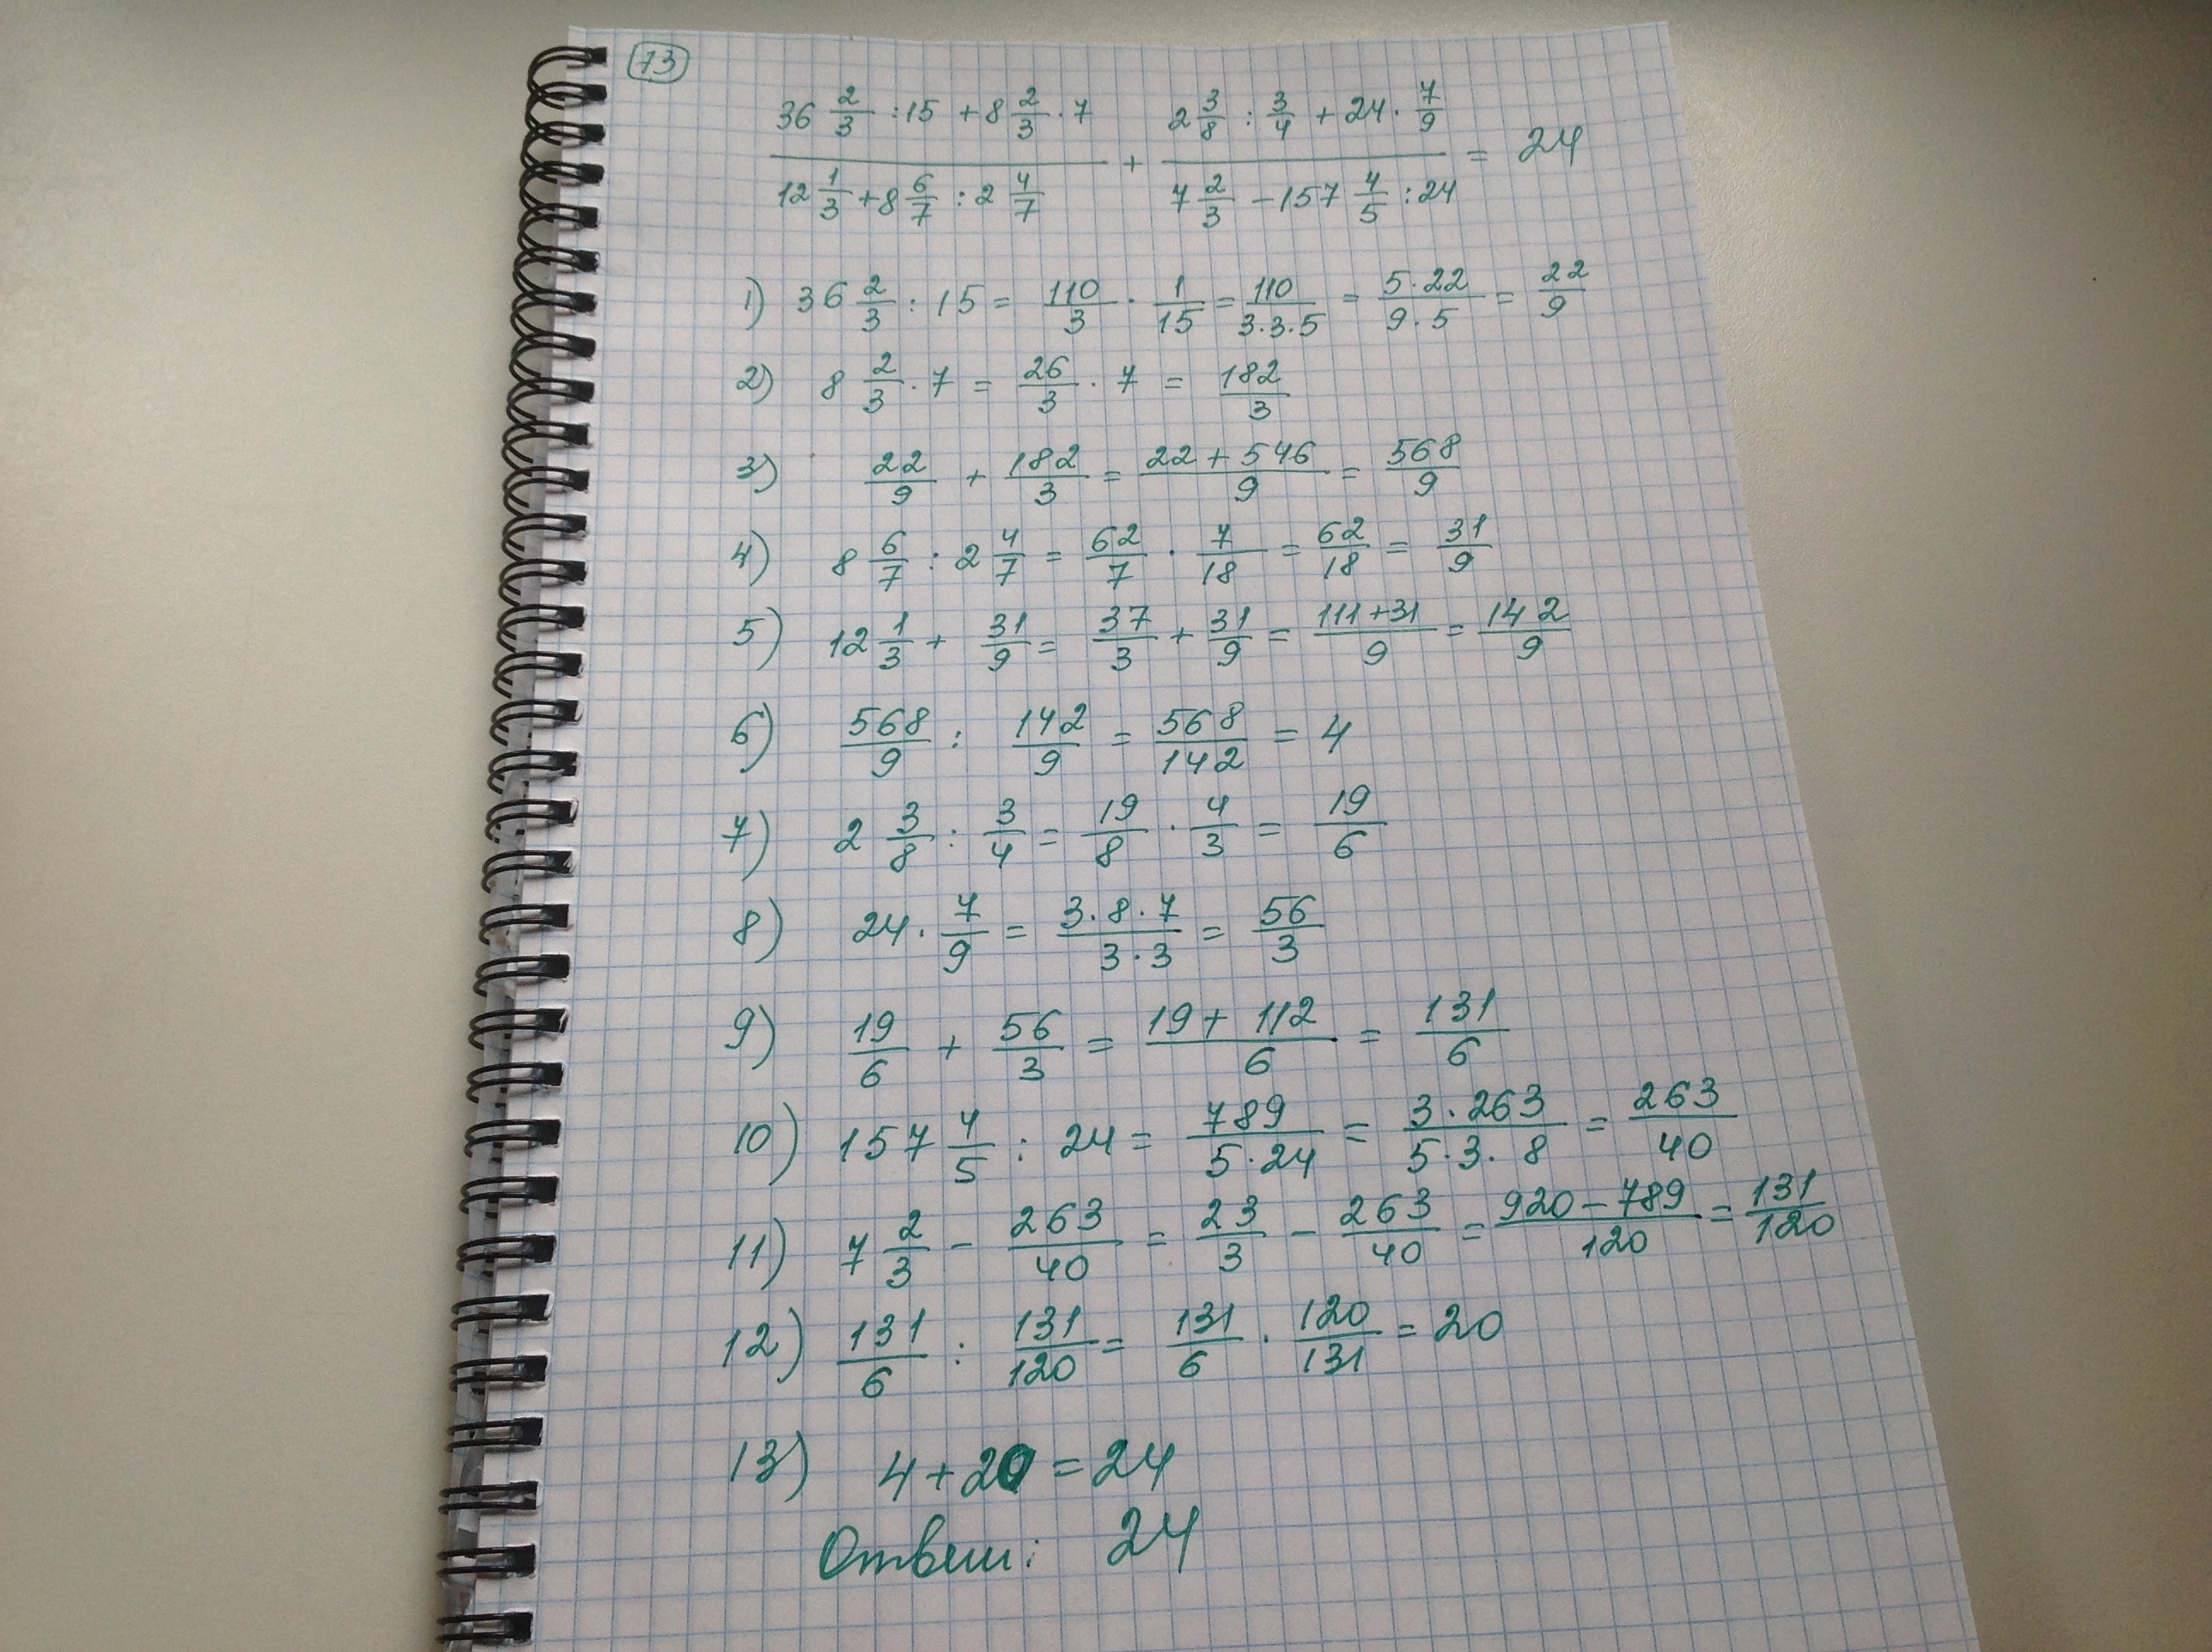 73
(36 2/3 : 15 + 8 2/3 · 7)/(12 1/3 + 8 6/7 : 2 4/7) + (2 3/8 : 3/4 + 24 · 7/9)/(7 2/3 - 157 4/5 : 24) = 24
1) 36 2/3 : 15 = 110/3 · 1/15 = 110/(3·3·5) = (5·22)/(9·5) = 22/9
2) 8 2/3 · 7 = 26/3 · 7 = 182/3
3) 22/9 + 182/3 = (22 + 546)/9 = 568/9
4) 8 6/7 : 2 4/7 = 62/7 · 7/18 = 62/18 = 31/9
5) 12 1/3 + 31/9 = 37/3 + 31/9 = (111+31)/9 = 142/9
6) 568/9 : 142/9 = 568/142 = 4
7) 2 3/8 : 3/4 = 19/8 · 4/3 = 19/6
8) 24 · 7/9 = (3·8·7)/(3·3) = 56/3
9) 19/6 + 56/3 = (19 + 112)/6 = 131/6
10) 157 4/5 : 24 = 789/(5·24) = (3·263)/(5·3·8) = 263/40
11) 7 2/3 - 263/40 = 23/3 - 263/40 = (920-789)/120 = 131/120
12) 131/6 : 131/120 = 131/6 · 120/131 = 20
13) 4+20 = 24
Ответ: 24